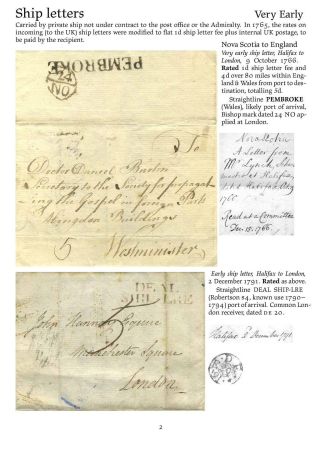 Ship letters
Very Early
Carried by private ship not under contract to the post office or the Admiralty. In 1765, the rates on
incoming (to the UK) ship letters were modified to flat 1d ship letter fee plus internal UK postage, to
be paid by the recipient.
Nova Scotia to England
Very early ship letter, Halifax to
London, 9 October 1766.
Rated 1d ship letter fee and
4d over 80 miles within Eng
& Wales from port to des-
tination, totalling 5d.
Straightline PEMBROKE
(Wales), likely port of arrival,
Bishop mark dated 24 NO ap-
plied at London.
PEMBROKE
24
NO
To
Doctor Daniel Burton
Secretary to the Society for propagat
ing the Gospel in foreign Parts
Abingdon Buildings
5 Westminister
Nova Scotia
A Letter from
Mr Lynch, School
master at Halifax,
1766
Read at a Committee
Dec. 15. 1766
Early ship letter, Halifax to London,
2 December 1791. Rated as above.
Straightline DEAL SHIP-LRE
(Robertson S4, known use 1790–
1794) port of arrival. Common Lon-
don receiver, dated DE 20.
DEAL
SHIP LRE
John Hannay Esquire
Manchester Square
London
Halifax 2 December 1791
2